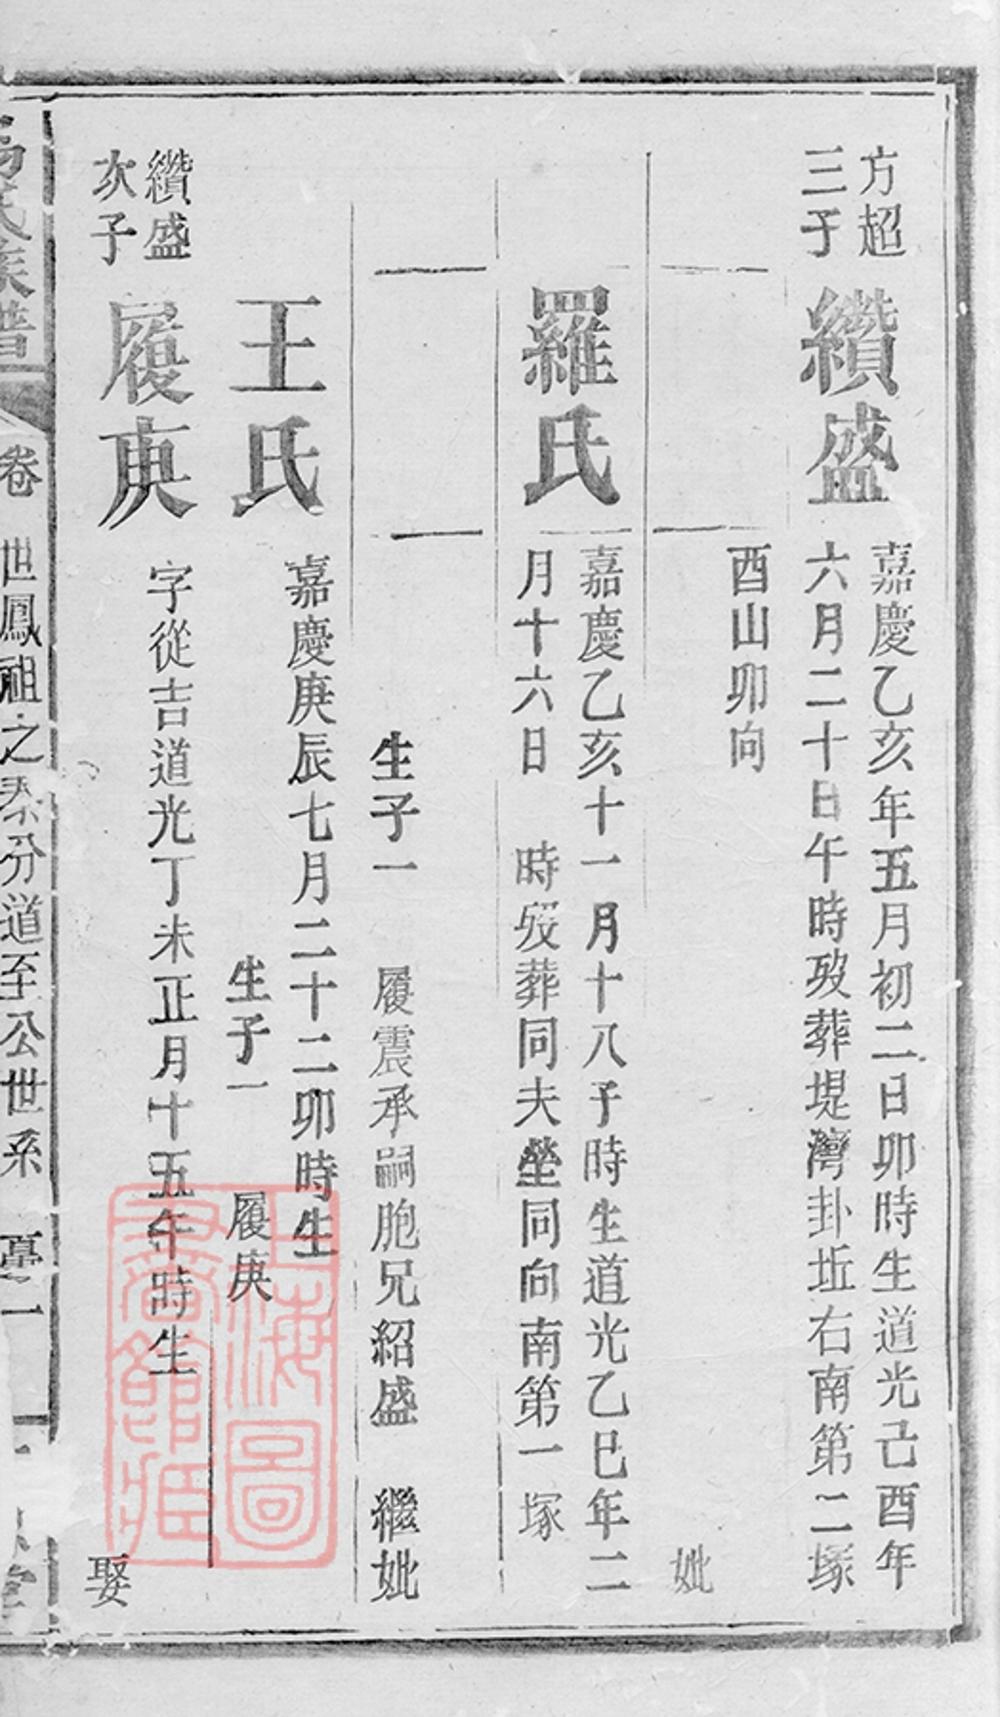 方超
三子
纘盛
嘉慶乙亥年五月初二日卯時生道光己酉年
六月二十日午時歿葬堤灣卦坵右南第二塚
酉山卯向
妣
羅氏
嘉慶乙亥十一月十八子時生道光乙巳年二
月十六日 時歿葬同夫塋同向南第一塚
生子一 履震承嗣胞兄紹盛 繼妣
王氏
嘉慶庚辰七月二十二卯時生
生子一 履庚
纘盛
次子
履庚
字從吉道光丁未正月十五午時生
娶
氏族譜
卷 世鳳祖之 分道至公世系 一
堂
上海圖
書館藏